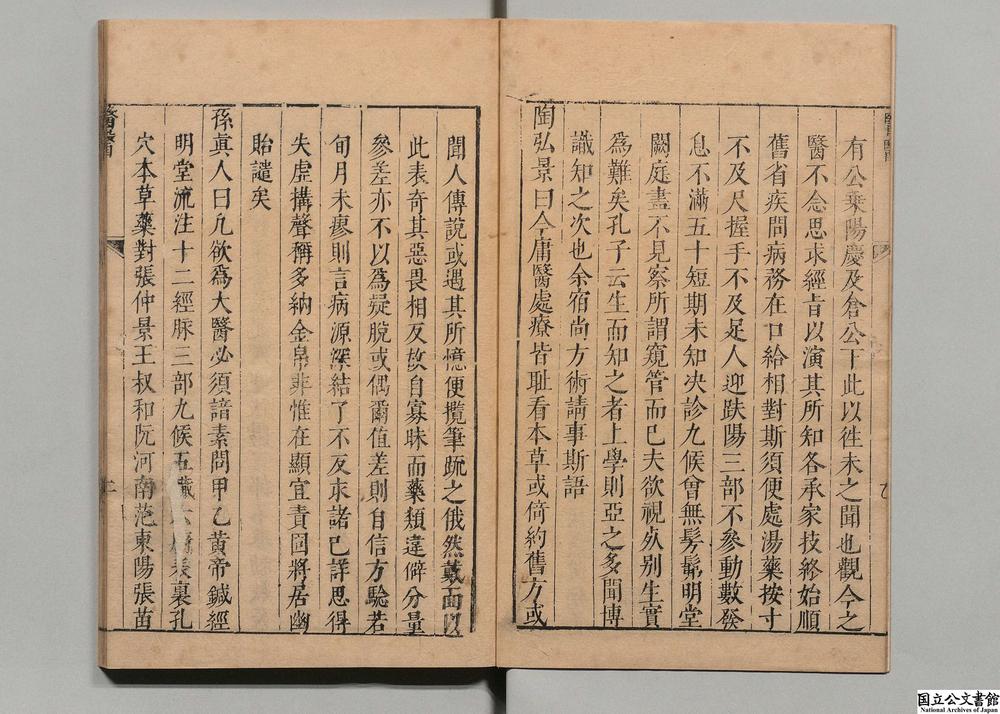 有公乗陽慶及倉公下此以徃未之聞也觀今之
醫不念思求經旨以演其所知各承家技終始順
舊省疾問病務在口給相對斯須便處湯藥按寸
不及尺握手不及足人迎趺陽三部不參動數發
息不滿五十短期未知决診九候曾無髣髴明堂
闕庭盡不見察所謂窺管而已夫欲視死别生實
爲難矣孔子云生而知之者上學則亞之多聞博
識知之次也余宿尚方術請事斯語
陶弘景曰今庸醫處療皆耻看本草或倚約舊方或
聞人傳說或遇其所憶便攬筆疏之俄然戴面以
此表奇其惡畏相反故自寡昧而藥類違僻分量
參差亦不以爲疑脫或偶爾值差則自信方驗若
旬月未瘳則言病源深結了不反求諸己詳思得
失虛搆聲稱多納金帛非惟在顯宜責固將居幽
貽譴矣
孫眞人曰凡欲爲大醫必須諳素問甲乙黃帝鍼經
明堂流注十二經脉三部九候五臟六腑表裏孔
穴本草藥對張仲景王叔和阮河南范東陽張苗
二
国立公文書館
National Archives of Japan